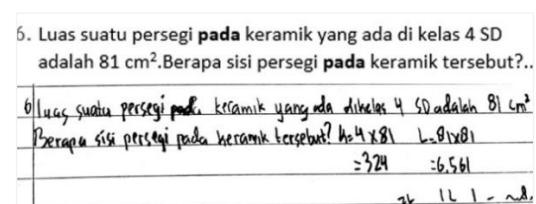 6. Luas suatu persegi pada keramik yang ada di kelas 4 SD
adalah 81 cm².Berapa sisi persegi pada keramik tersebut?..
6 luas suatu persegi pada keramik yang ada dikelas 4 SD adalah 81 cm²
Berapa sisi persegi pada keramik tersebut? k=4x81 L=81x81
=324 =6.561